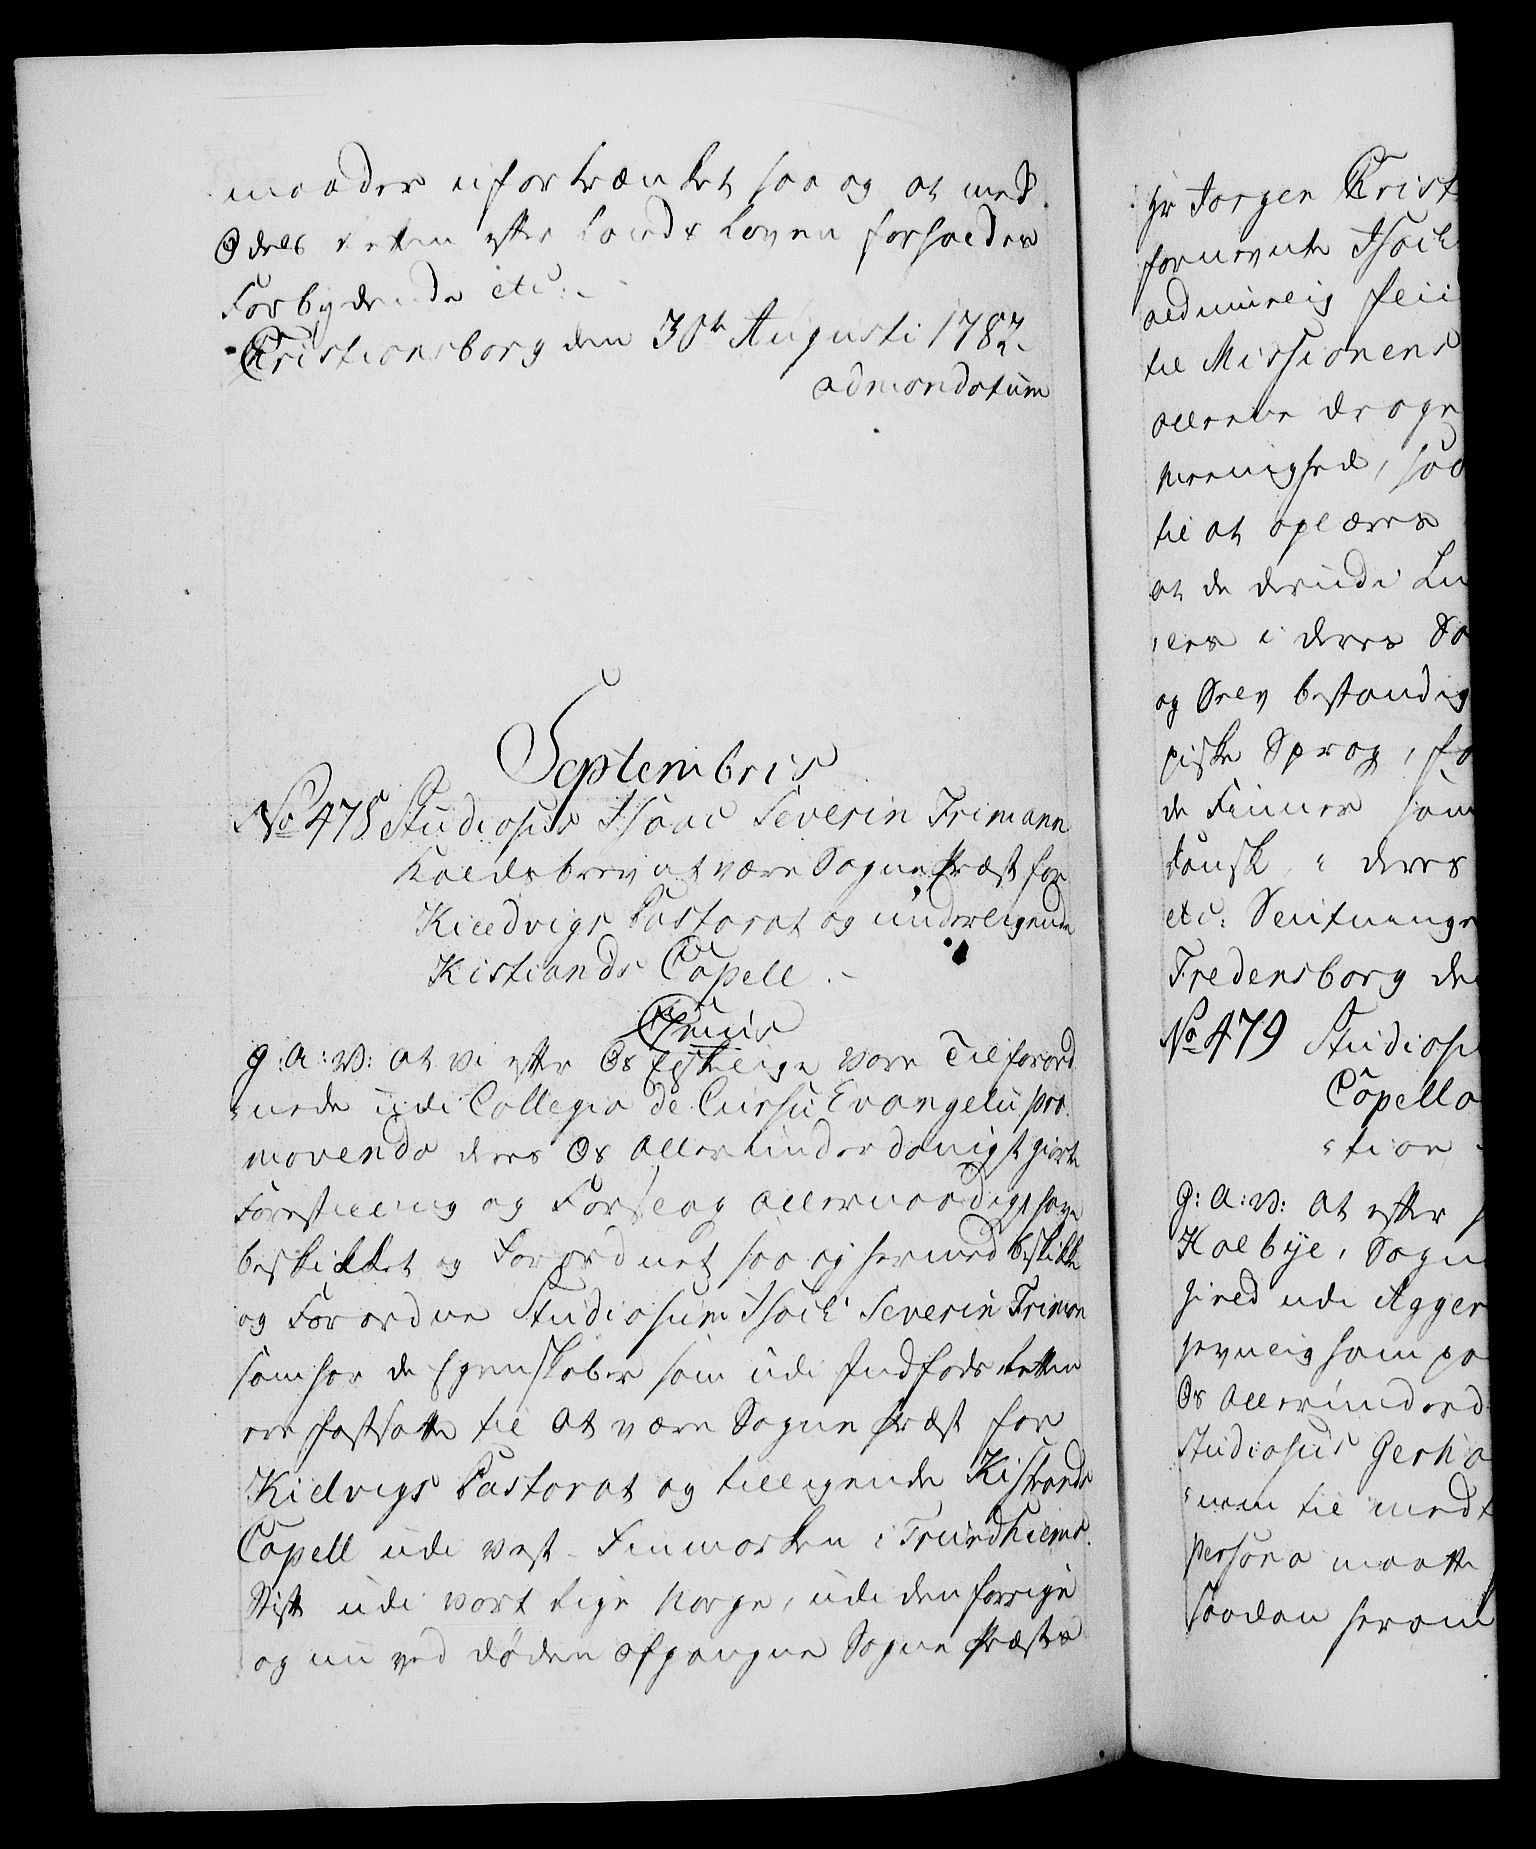 maader ufortrænket saa og at med
Odels retten efter Lands Loven forholder
Forbydende etc:
Christiansborg den 30te Augusti 1782.
admandatum
Septembris
No 478 Studiosus Isaac Severin Trimann
Kaldsbrev at være Sogne Præst for
Kieldvigs Pastorat og underligende
Kistrands Capell.
Chr: VII
G: A: V: at vi efter Os Elskelige vore Tilforord
nede udi Collegio de Cursu Evangelii pro
movendo deres Os allerunderdanigst giorte
Forestilling og Forslag allernaadigst have
beskikket og Forordnet saa og hermed beskikke
og Forordne Studiosum Isach Severin Triman
som har de Egenskaber som udi Indføds Retten
ere fastsatte til at være Sogne Præst for
Kielvigs Pastorat og tilligende Kistrands
Capell udi Vest-Finmarken i Trundhiems
Stift udi vort Rige Norge, udi den forrige
og nu ved døden afgangne Sogne Præstes
Hr Jørgen Krist
fornevnte Isach
aldmindelig flii
til Missionens
allene drage
meenighed, saa
til at oplæres
at de derudi Lu
i deres Sa
og Selv bestandig
piske Sprog, fo
de Finner som
dansk i deres
etc: Slutninge
Fredensborg de
No 479 Studiosu
Capella
tion
G: A: V: At efter
Holbye, Sogn
Gield udi Agger
hevnlig som pa
Os allerunderd
Studiosus Gerha
nem til medt
persona maatte
saadan herom